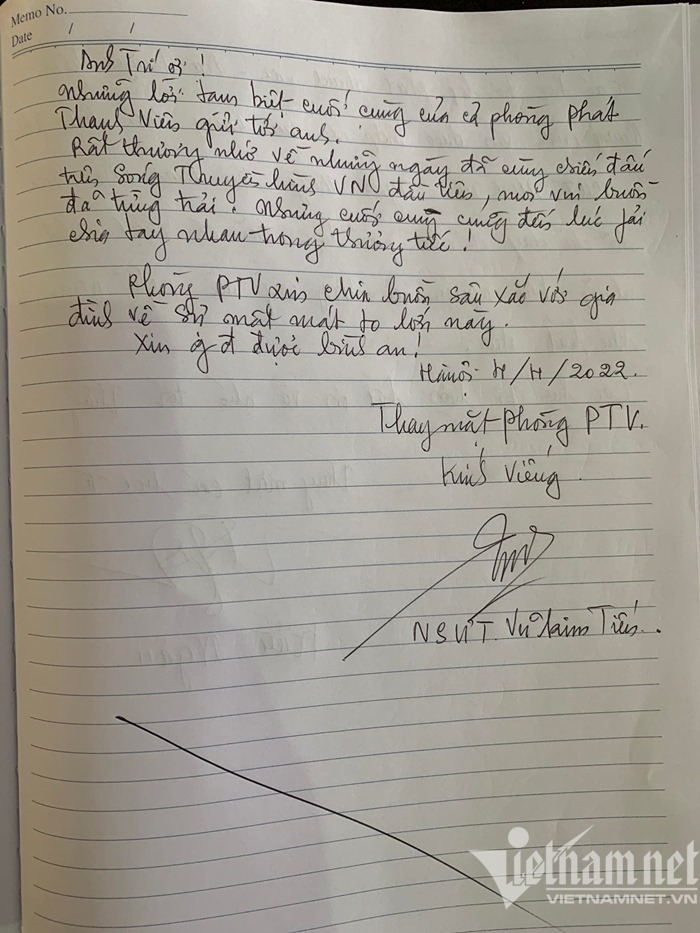 Memo No.
Date / /
Anh Trí ơi!
Những lời tạm biệt cuối cùng của cả phòng phát
Thanh Viên gửi tới anh.
Rất thương nhớ về những ngày đã cùng chiến đấu
trên sóng Truyền hình VN đầu tiên, mọi vui buồn
đã từng trải. Nhưng cuối cùng cũng đến lúc fải
chia tay nhau trong thương tiếc!
Phòng PTV xin chia buồn sâu sắc với gia
đình về sự mất mát to lớn này.
Xin g đ được bình an!
Hànội 4/4/2022.
Thay mặt phòng PTV.
Kính Viếng.
NSƯT. Vũ Kim Tiến.
Vietnamnet
VIETNAMNET.VN